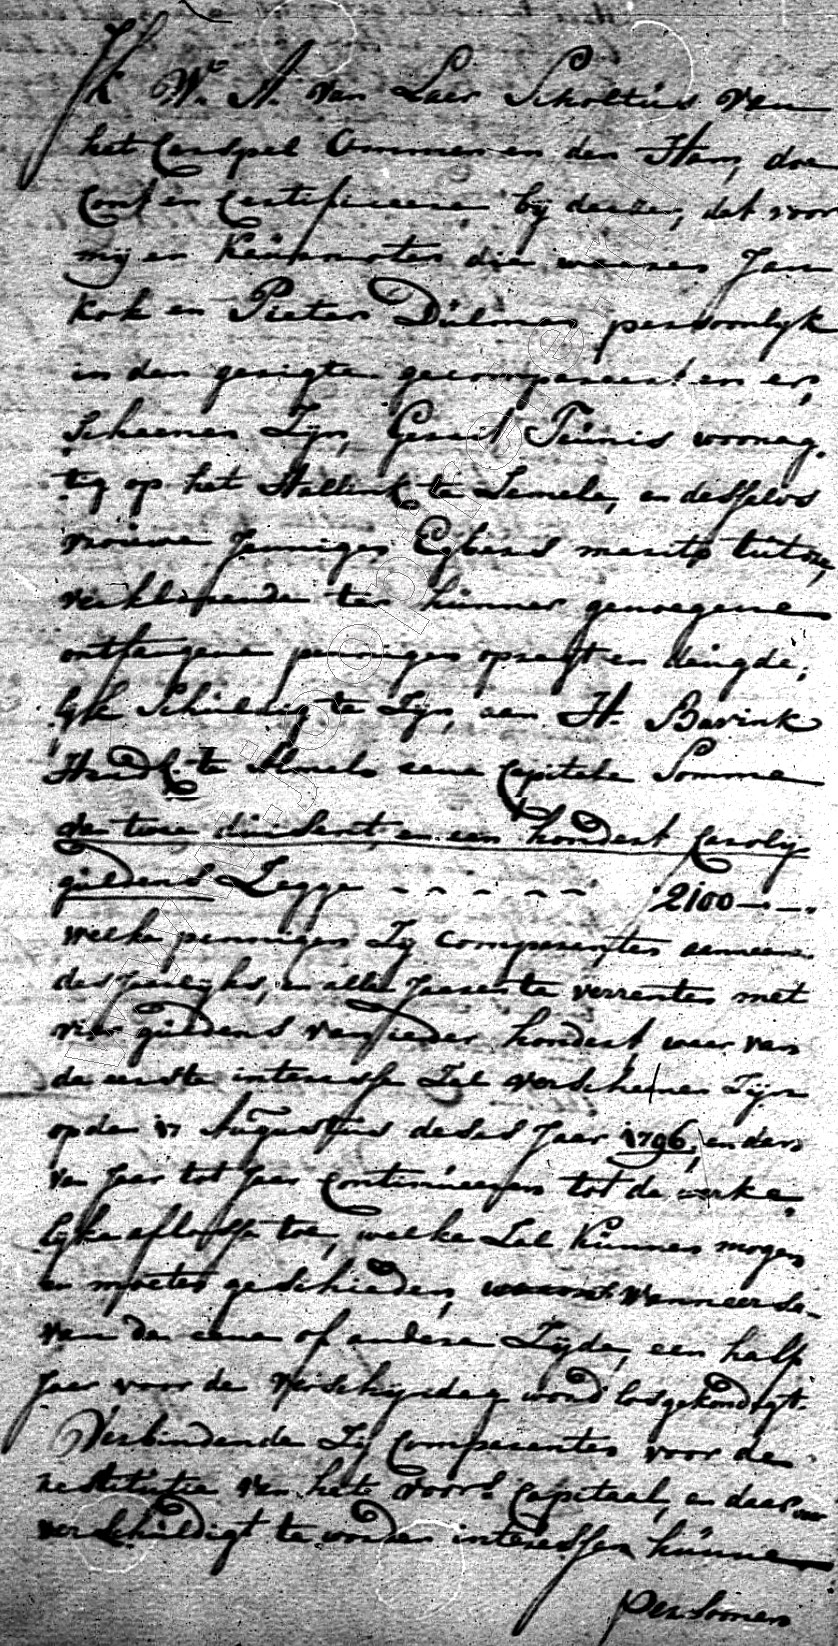 Ik W. A. van Laer Scholtus van
het Carspel Ommen en den Ham, doe
Cont en Certificeere bij deesen, dat voor
mij en Keurnoten die waaren Jan
Kok en Pieter Dulmer persoonlijk
in den gerigte gecompareert en er,
scheenen Zijn, Gerrit Teunis woonag.
tig op het Hallink te Lemele, en desselvs
vrouwe Jennigen Egberts marito tutore,
verklaarende ter hunner genoegene
ontfangene penningen opregt en deugde,
lijk Schuldig te Zijn, aan H. Bavink
te Almelo eene Capitale Somma
van twee duisent, en een hondert Caroly
guldens Zegge - - - - - - 2100-.-.
welke penningen Zij Comparanten aennem.
den jaarlijks, en alle Jaaren te verrenten met
vier guldens van ieder hondert, waar van
de eerste interesse Zal verschenen Zijn
op de 17 Augustus deses Jaar 1796, en dan
van Jaar tot Jaar Continueeren tot de werke,
lijke aflosse toe, welke Zal Kunnen mogen
en moeten geschieden, wanneer se
van de eene of andere Zijde, een half
Jaar voor de verschijndag word losgekondigt.
Verbindende Zij Comparanten voor de
restitutie van het voors. Capitaal, en daar van
verschuldigt te worden interessen hunne
persoonen
www.jooppretje.nl